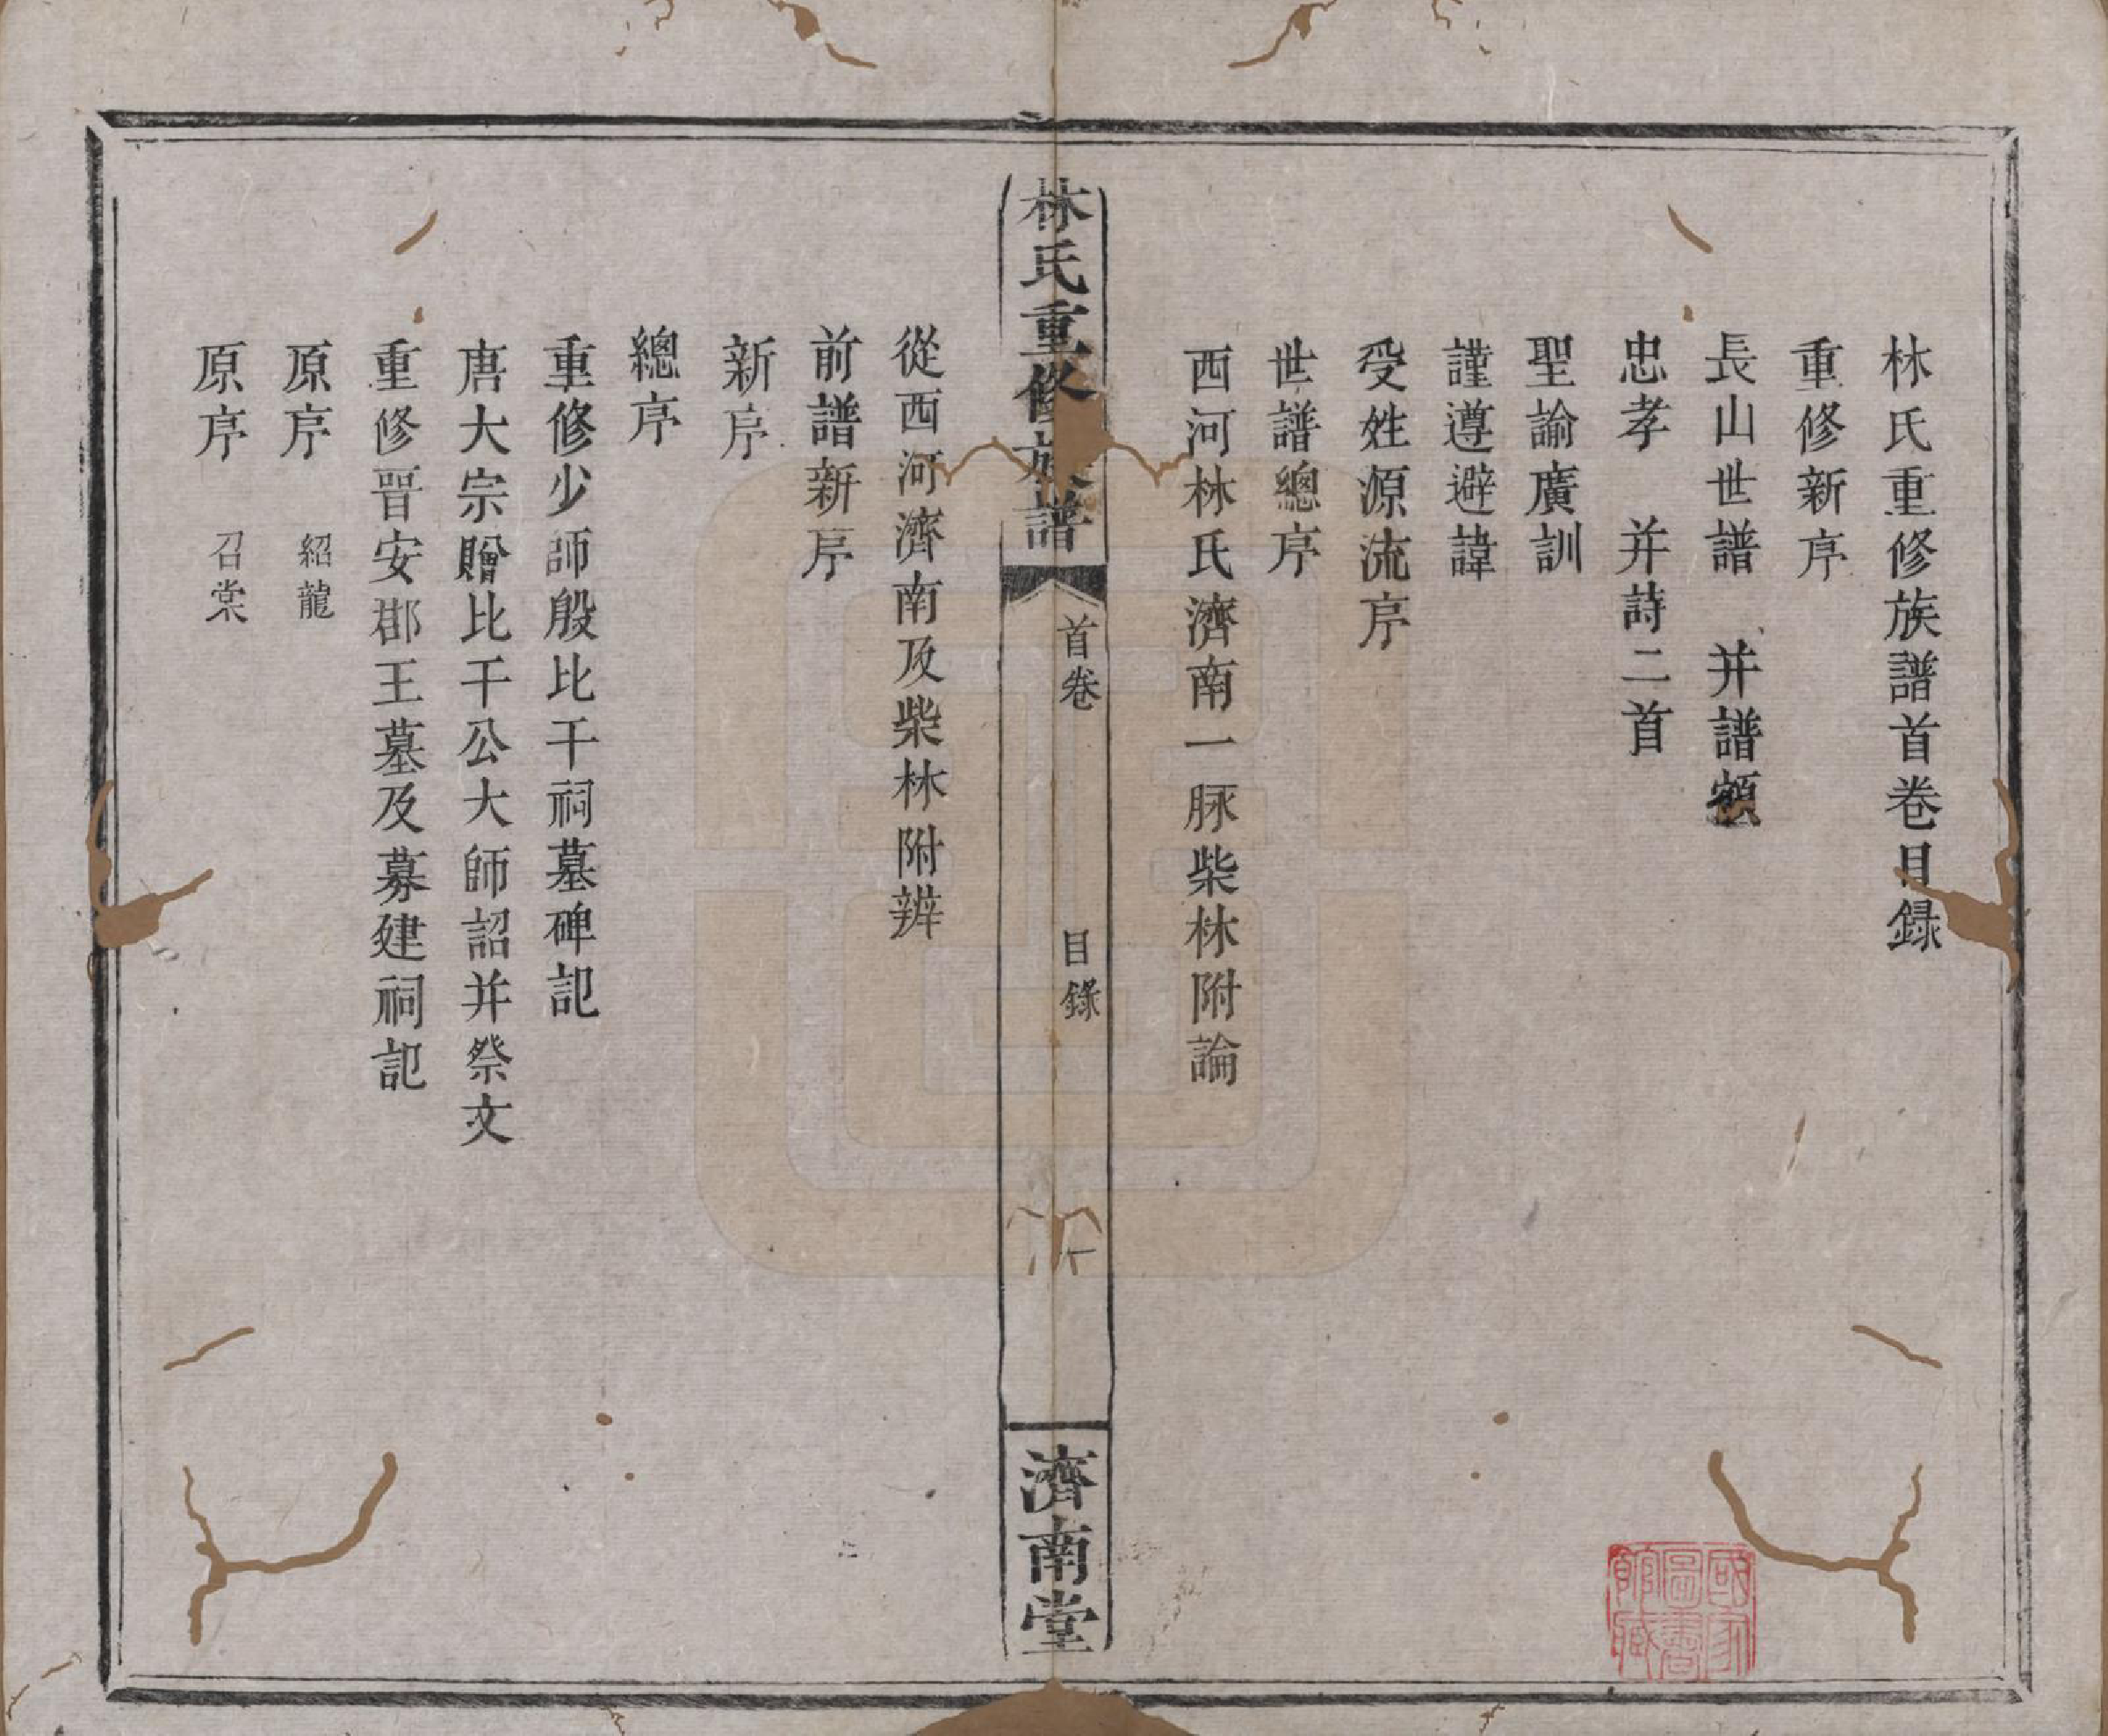 林氏重修族譜首卷目録
重修新序
長山世譜　并譜額
忠孝　并詩二首
聖諭廣訓
謹遵避諱
受姓源流序
世譜總序
西河林氏濟南一脉柴林附論
林氏重修族譜
首卷
目錄
一
濟南堂
從西河濟南及柴林附辨
前譜新序
新序
總序
重修少師殷比干祠墓碑記
唐大宗贈比干公大師詔并祭文
重修晋安郡王墓及募建祠記
原序　紹龍
原序　召棠
國家圖書館藏